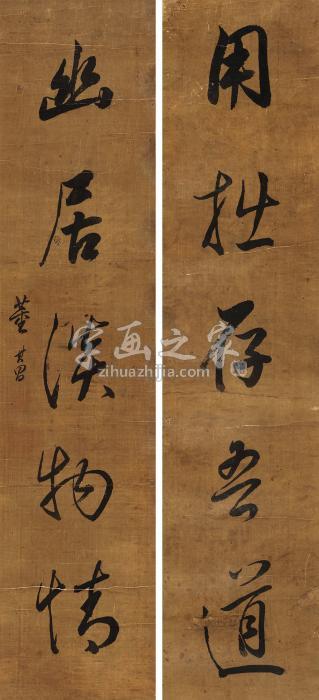 用拙存吾道
幽居物情
董其昌
字画之家
zihuazhijia.com